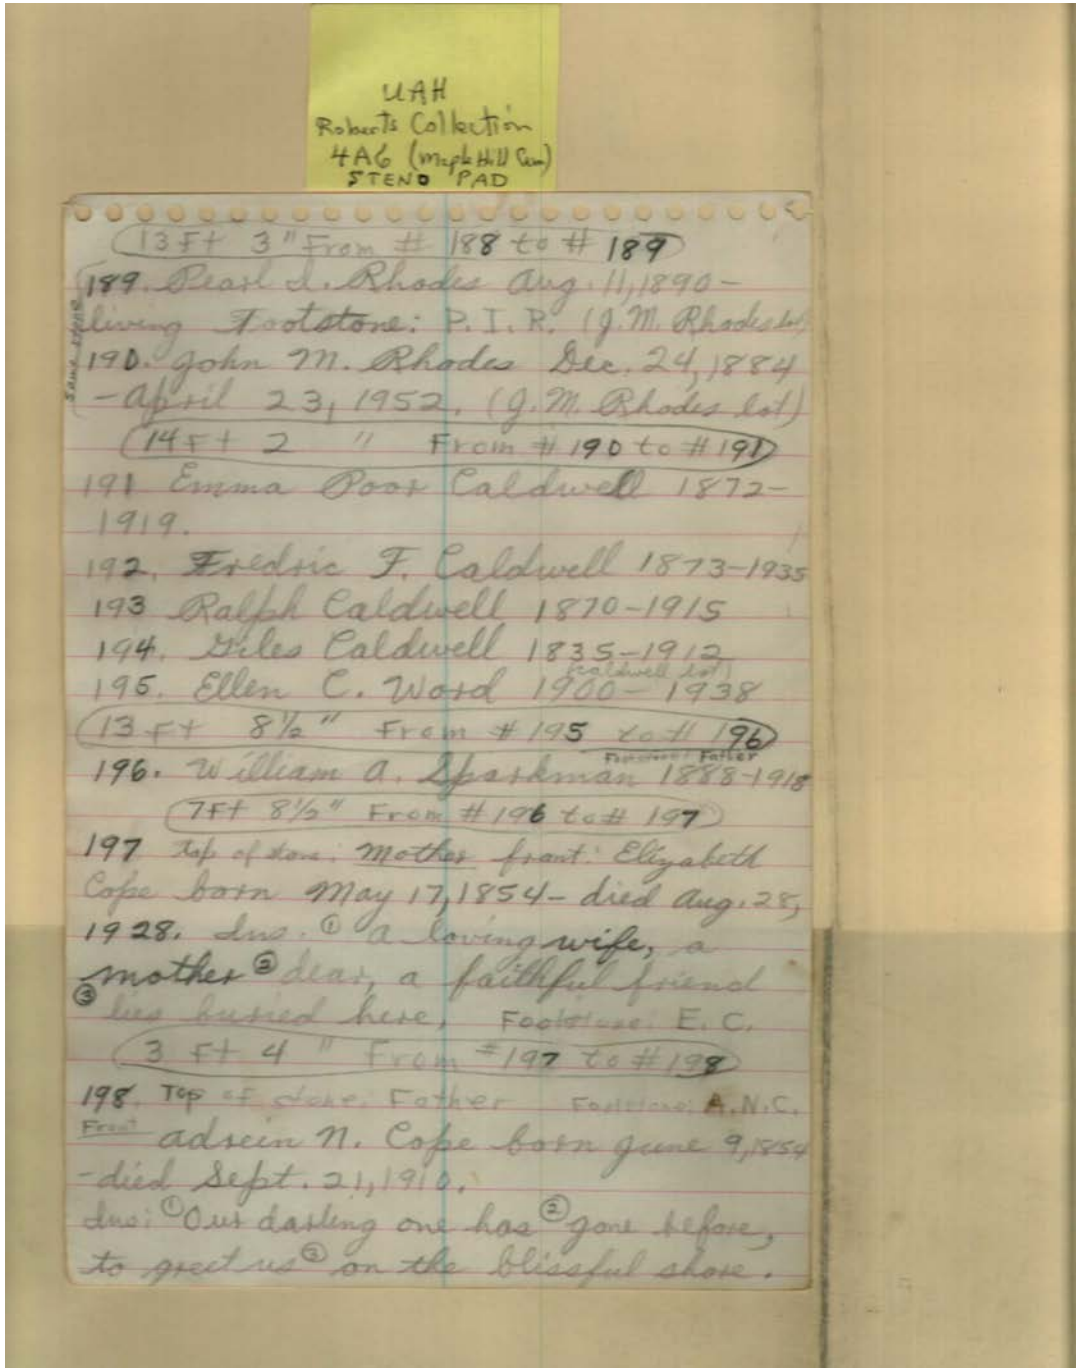 UAH
Roberts Collection
4A6 (Maple Hill Cem)
STENO PAD
13 Ft 3" From # 188 to # 189
same stone
189. Pearl I. Rhodes Aug. 11, 1890-
living Footstone: P.I.R. (J.M. Rhodes lot)
190. John M. Rhodes Dec. 24, 1884
-April 23, 1952. (J.M. Rhodes lot)
14 Ft 2 " From # 190 to # 191
191 Emma Poor Caldwell 1872-
1919.
192. Fredric F. Caldwell 1873-1935
193 Ralph Caldwell 1870-1915
194. Giles Caldwell 1835-1912
(Caldwell lot)
195. Ellen C. Word 1900-1938
13 Ft 8½" From # 195 to # 196
Footstone: Father
196. William A. Sparkman 1888-1918
7 Ft 8½" From # 196 to # 197
197 top of stone: Mother front: Elizabeth
Cope born May 17, 1854- died Aug. 28,
1928. Ins. ① A loving wife, a
mother ② dear, a faithful friend
③ lies buried here, Footstone: E.C.
3 Ft 4 " From # 197 to # 198
198. Top of stone: Father Footstone: A.N.C.
Front Adrein N. Cope born June 9, 1854
-died Sept. 21, 1910.
Ins: ① Our darling one has ② gone before,
to greet us ③ on the blissful shore.